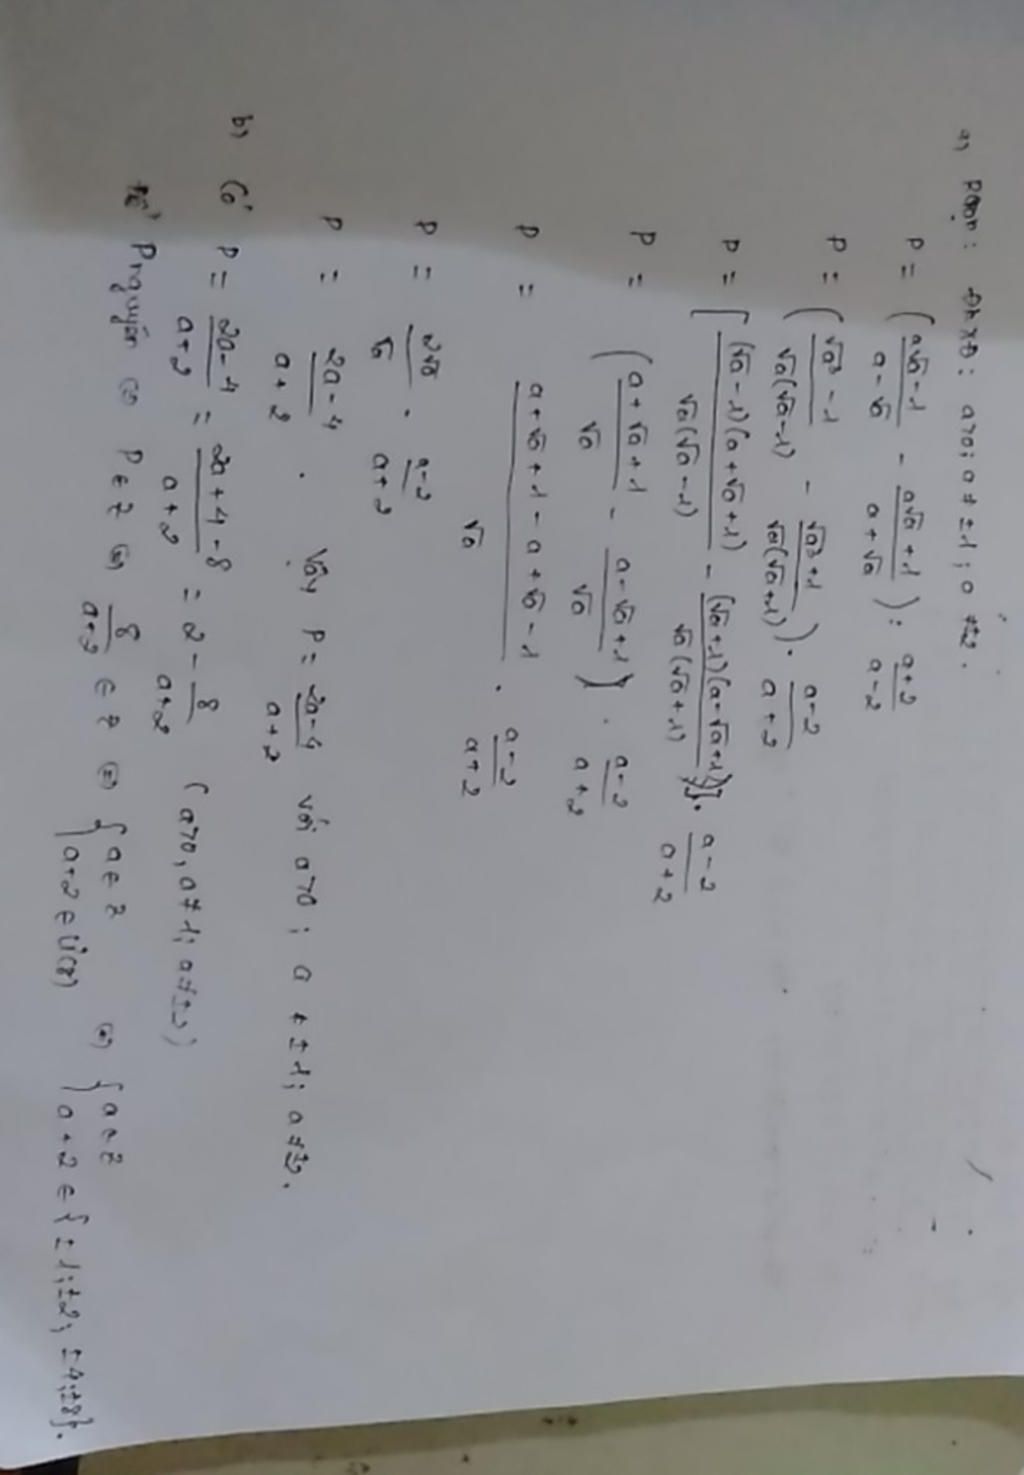 a) Rgọn: ĐKXĐ: a>0; a ≠ ±1; a ≠ ±2.
P = (a√a - 1 / a - √a - a√a + 1 / a + √a) : a+2 / a-2
P = (√a³ - 1 / √a(√a-1) - √a³ + 1 / √a(√a+1)) . a-2 / a+2
P = [(√a - 1)(a + √a + 1) / √a(√a - 1) - (√a + 1)(a - √a + 1) / √a(√a + 1)] . a-2 / a+2
P = (a + √a + 1 / √a - a - √a + 1 / √a) . a-2 / a+2
P = a + √a + 1 - a + √a - 1 / √a . a-2 / a+2
P = 2√a / √a . a-2 / a+2
P = 2a - 4 / a + 2 . Vậy P = 2a-4 / a+2 với a>0; a ≠ ±1; a ≠ ±2.
b) Có P = 2a-4 / a+2 = 2a+4-8 / a+2 = 2 - 8 / a+2 (a>0, a≠1; a≠±2)
Để P nguyên <=> P ∈ Z <=> 8 / a+2 ∈ Z <=> { a ∈ Z ; a+2 ∈ Ư(8) <=> { a ∈ Z ; a+2 ∈ {±1; ±2; ±4; ±8}.